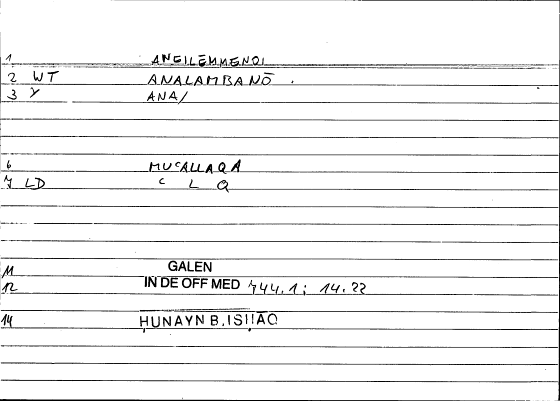 1 ANEILEMMENOI
2 WT ANALAMBANŌ .
3 Y ANA/
6 MUʿALLAQA
7 LD ʿ L Q
11 GALEN
12 IN DE OFF MED 744.1; 14.22
14 ḤUNAYN B. ISḤĀQ